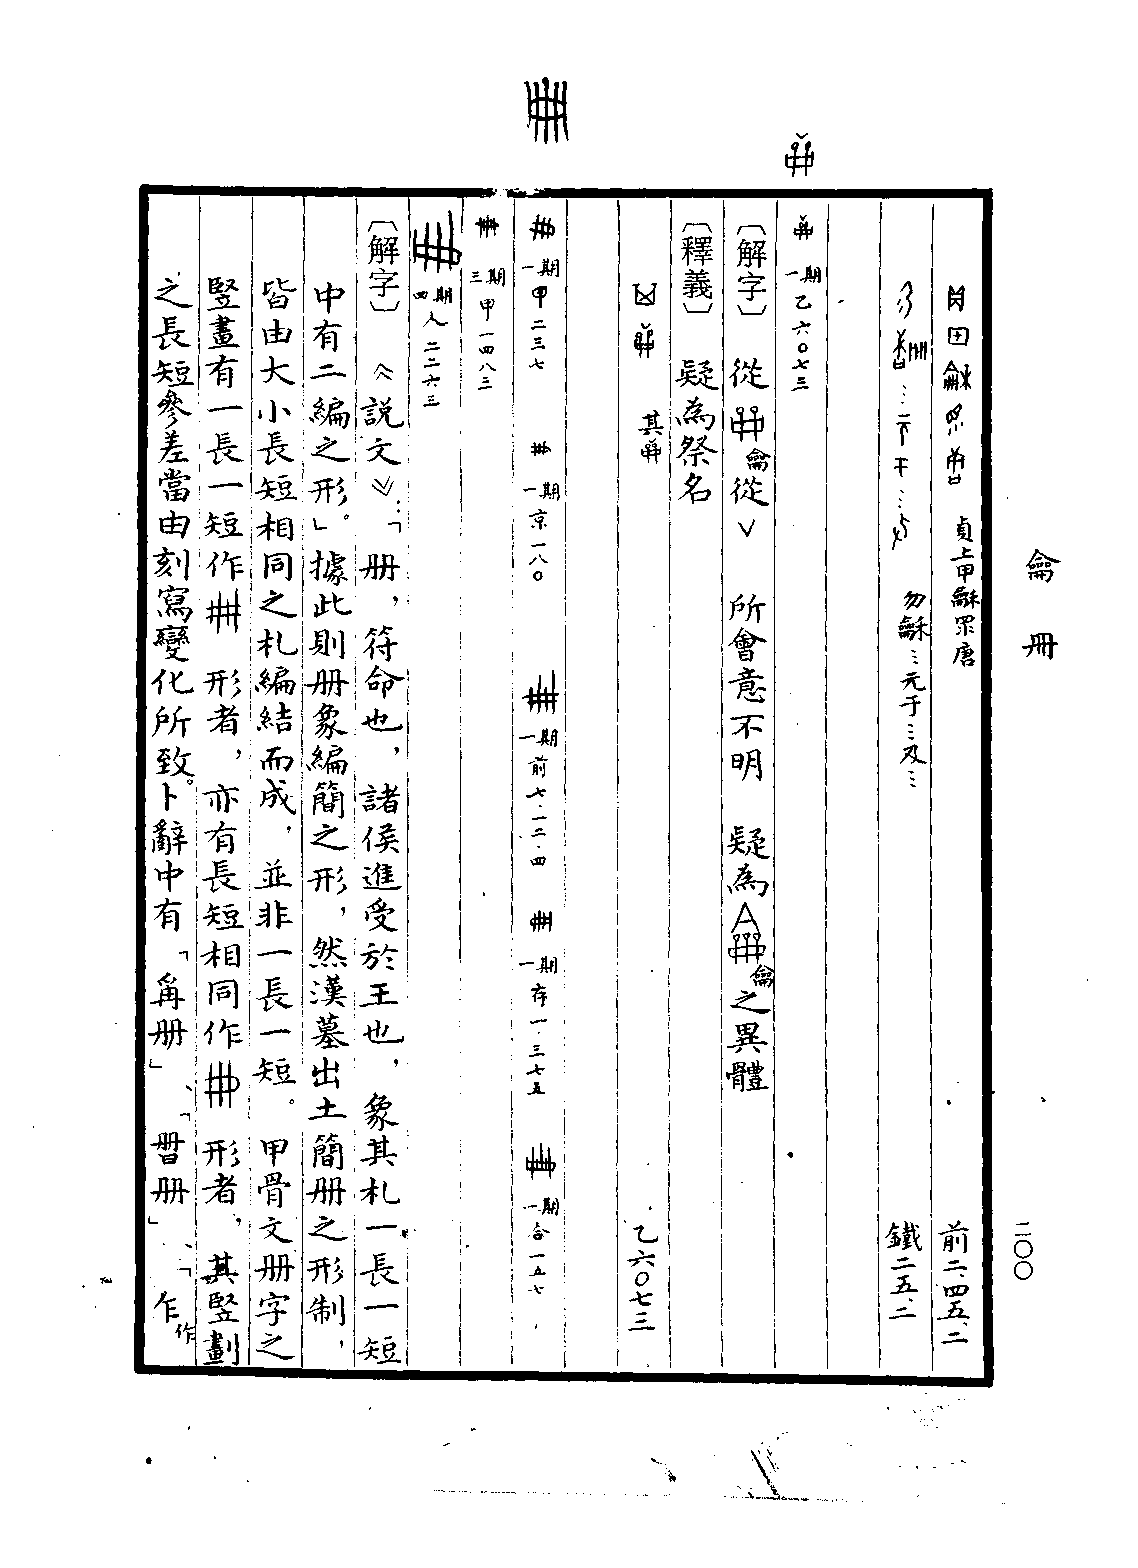 龠 冊
二〇〇
貞上甲龢眔唐 前二.四五.二
勿龢……元于……及…… 鐵二五.二
一期 乙六〇七三
〔解字〕 從龠從 所會意不明 疑為龠之異體
〔釋義〕 疑為祭名
其 乙六〇七三
一期 甲二三七 一期 京一八〇 一期 前七.一二.四 一期 存一.三七五 一期 合一五七
三期 甲一四八三
四期 人二二六三
〔解字〕 《說文》：「册，符命也，諸侯進受於王也，象其札一長一短
中有二編之形。」據此則册象編簡之形，然漢墓出土簡册之形制，
皆由大小長短相同之札編結而成，並非一長一短。甲骨文册字之
豎畫有一長一短作 形者，亦有長短相同作 形者，其豎劃
之長短參差當由刻寫變化所致。卜辭中有「爯册」、「𠕋册」、「乍作